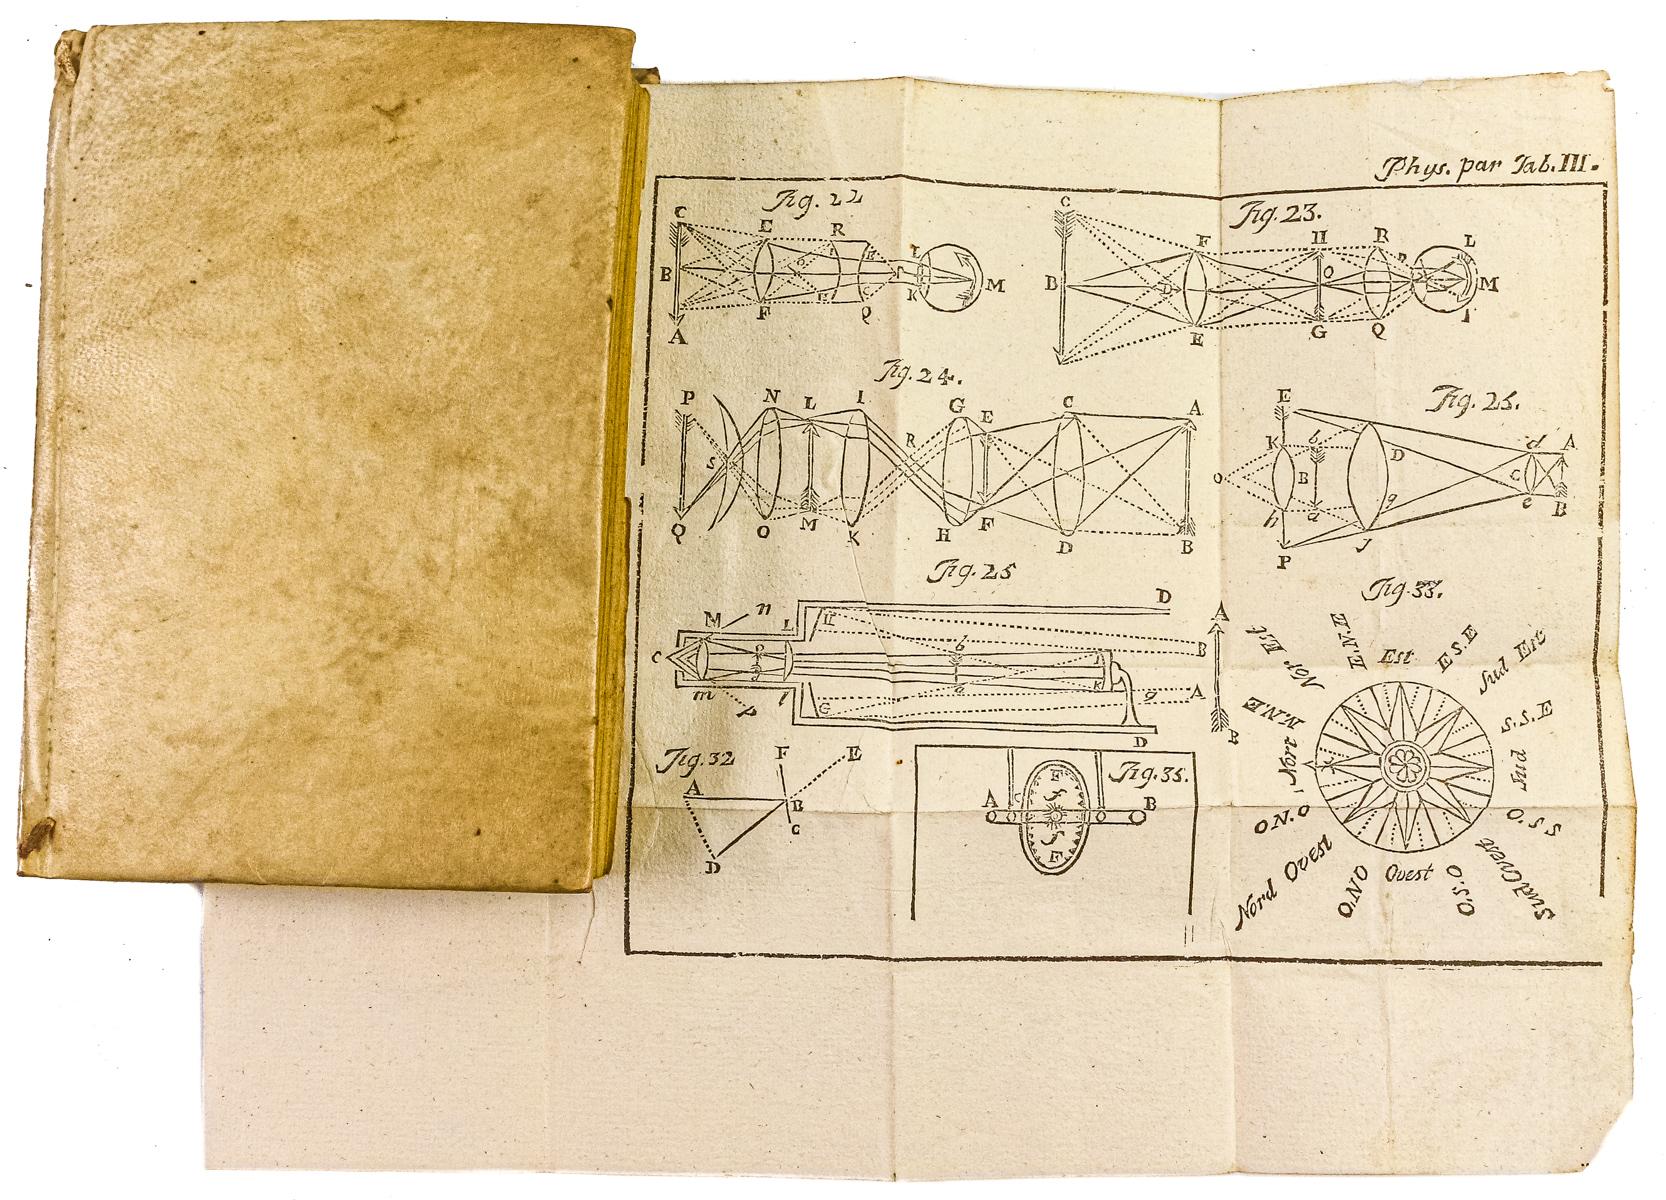 Phys. par Tab. III.
Fig. 22
C E R L
B M
A F Q K
Fig. 23.
C F H R L
B D O M
E G Q
Fig. 24.
P N L I G E C A
S R
Q O M K H F D B
Fig. 25.
E K b D d A
O B C
h a g e B
P J
Fig. 25
M n L H D
C b B A
m p l G a K g A
D B
Fig. 32
F E
A B
C
D
Fig. 35.
F
A C B
F
Fig. 33.
Nor Est E.N.E Est E.S.E Sud Est
N.N.E S.S.E
Nort Sud
O N.O S.S.O
Nord Ovest O.N.O Ovest O.S.O Sud Ovest